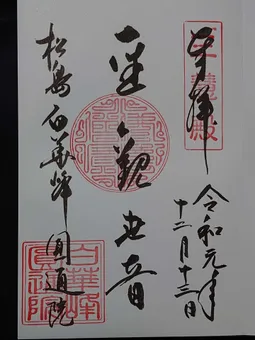 奉拝
三慧殿
令和元年
十二月十三日
聖觀世音
松島白華峰圓通院
白華峰
圓通院